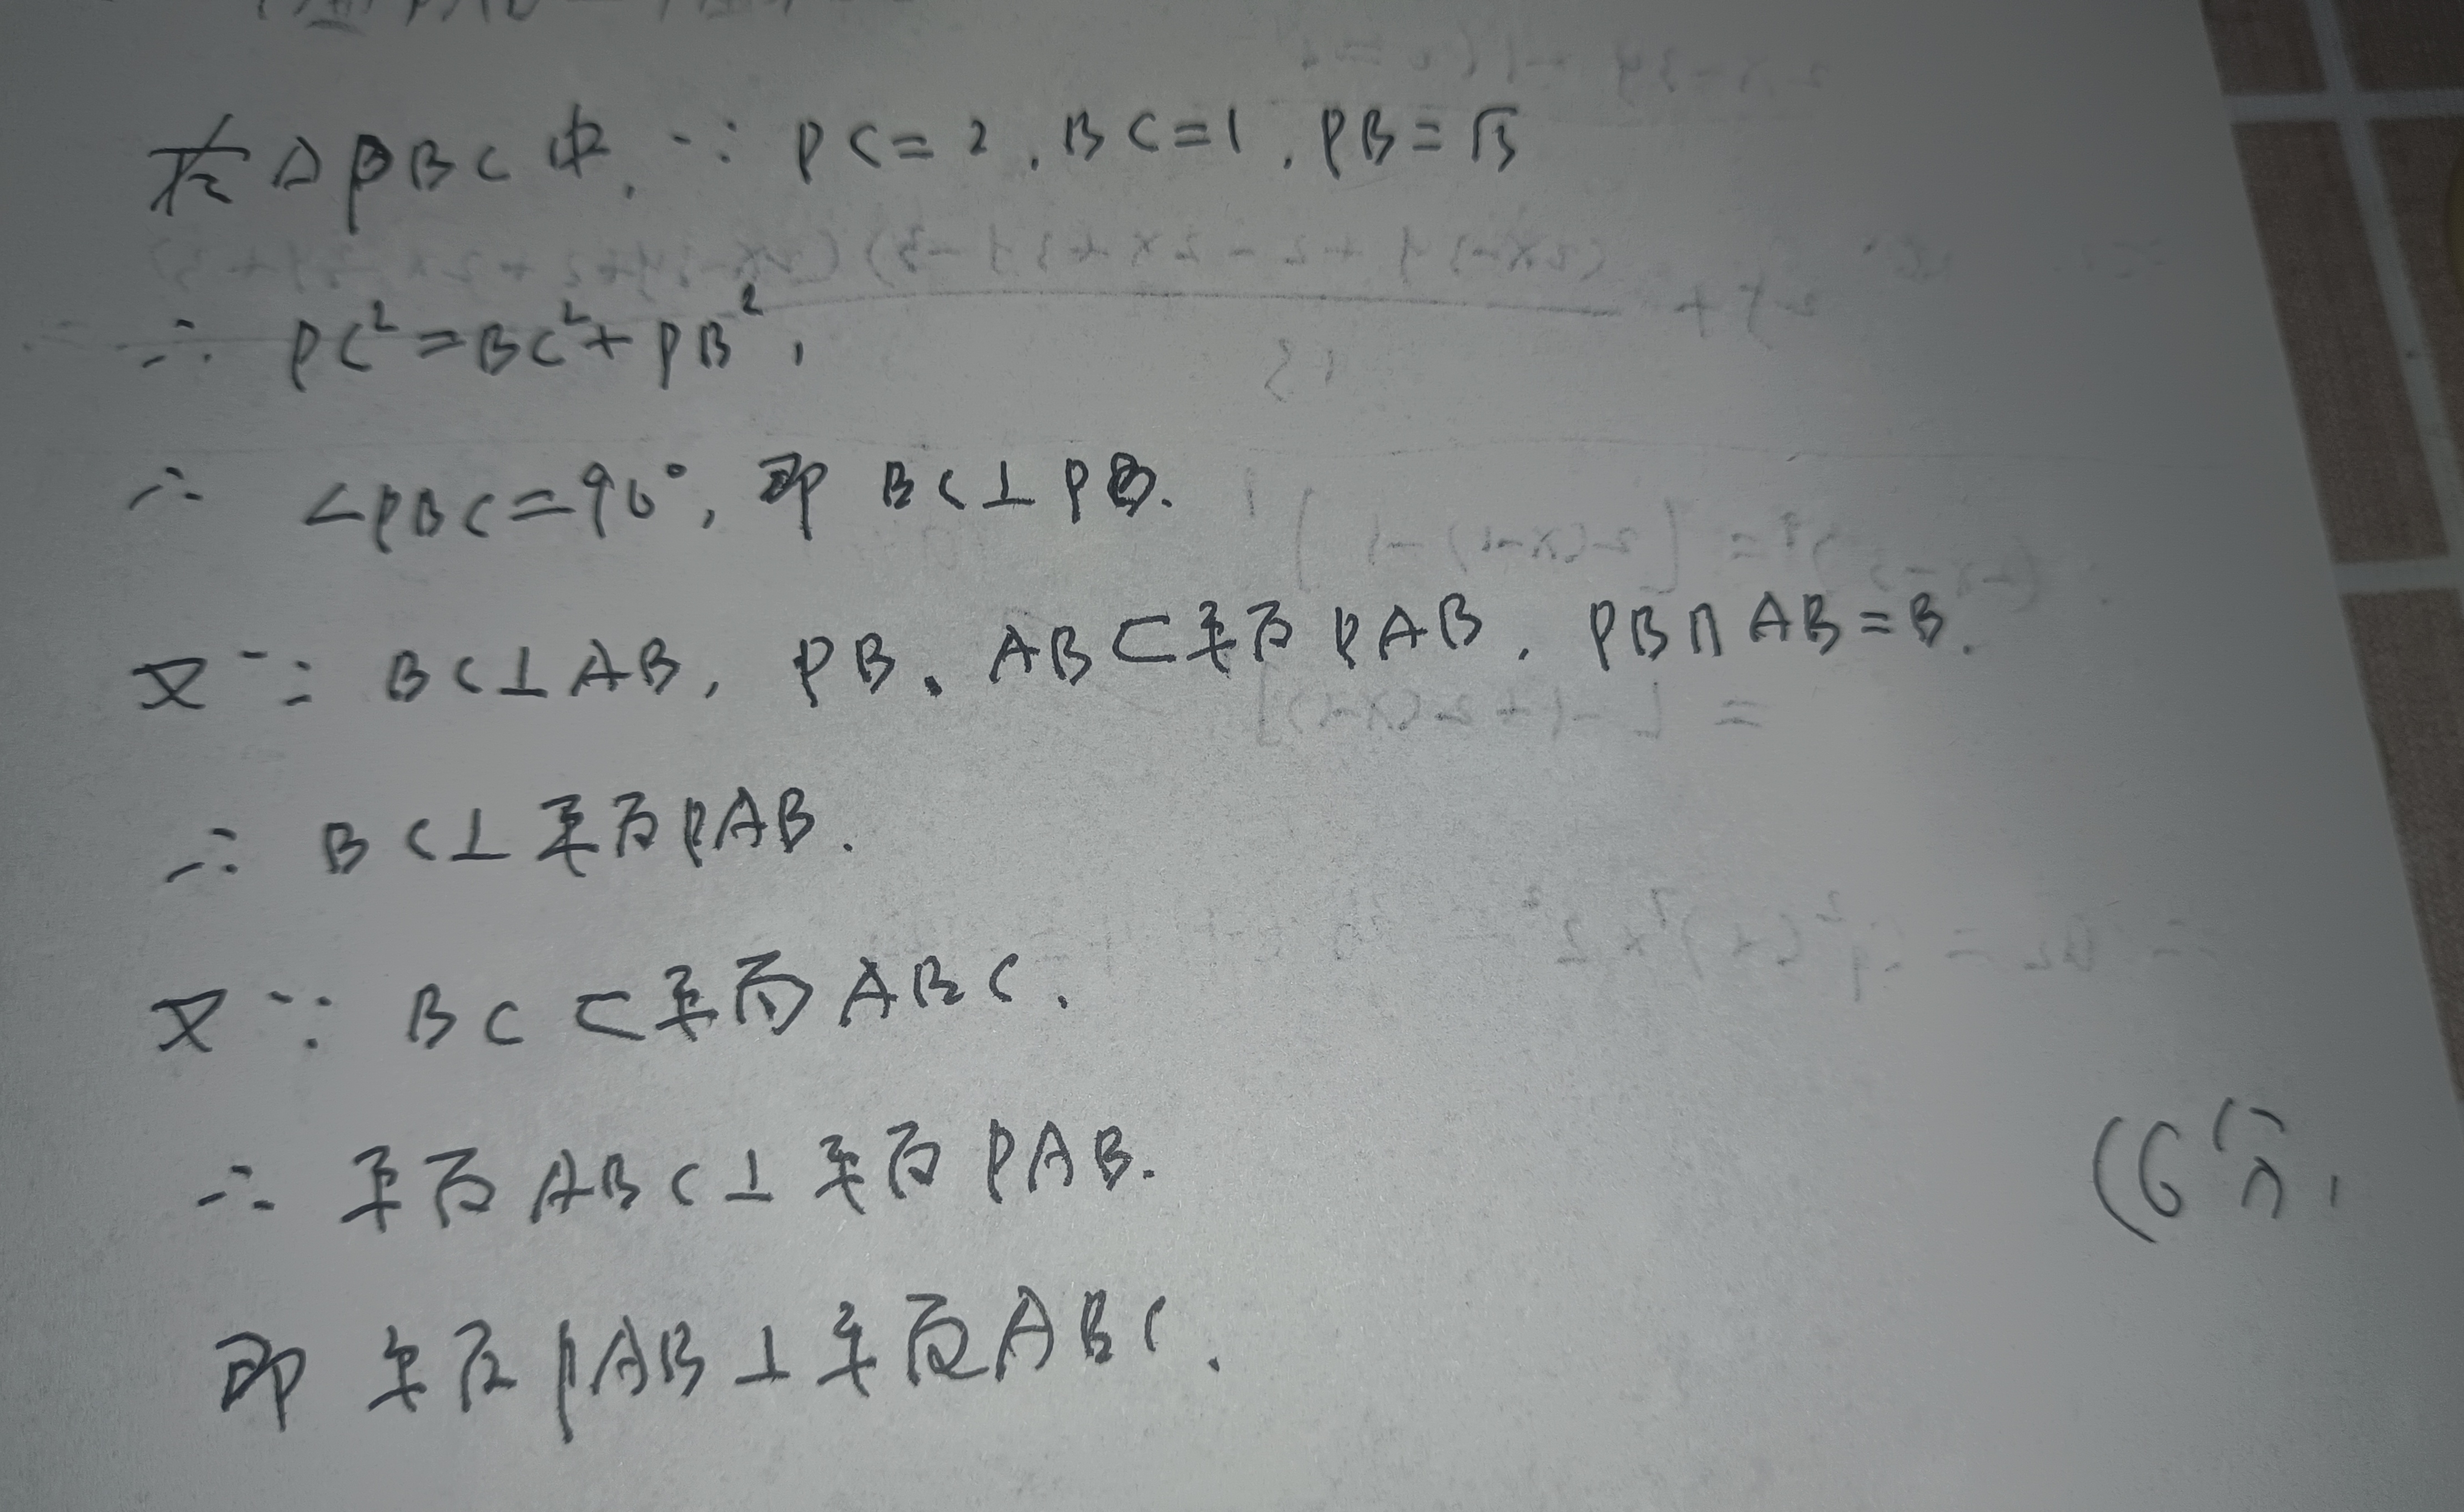 在△PBC中, ∵ PC=2, BC=1, PB=√3
∴ PC²=BC²+PB²,
∴ ∠PBC=90°, 即 BC⊥PB.
又∵ BC⊥AB, PB、AB⊂平面PAB, PB∩AB=B.
∴ BC⊥平面PAB.
又∵ BC⊂平面ABC.
∴ 平面ABC⊥平面PAB.
(6分)
即 平面PAB⊥平面ABC.